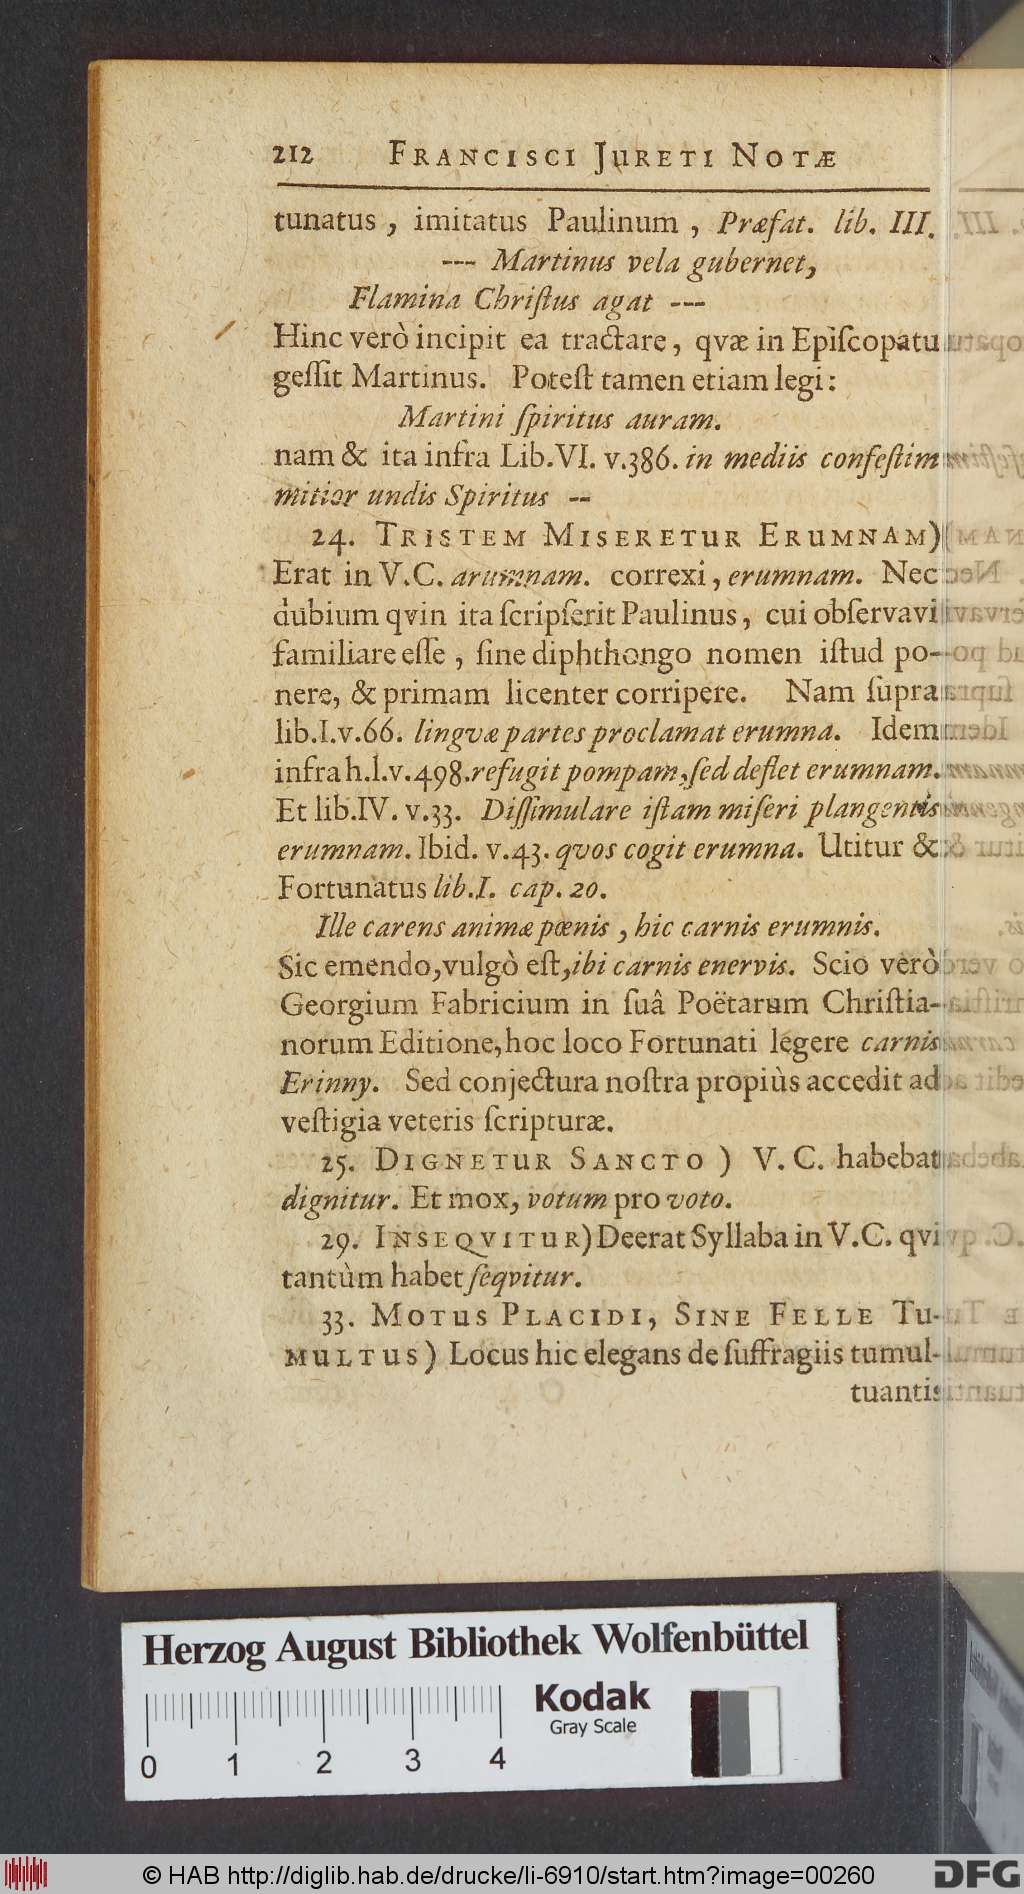 212 FRANCISCI JURETI NOTÆ
tunatus, imitatus Paulinum, Præfat. lib. III.
--- Martinus vela gubernet,
Flamina Chriſtus agat ---
Hinc verò incipit ea tractare, qvæ in Epiſcopatu
geſſit Martinus. Poteſt tamen etiam legi:
Martini ſpiritus auram.
nam & ita infra Lib. VI. v. 386. in mediis confeſtim
mitior undis Spiritus --
24. TRISTEM MISERETUR ERUMNAM)
Erat in V. C. arumnam. correxi, erumnam. Nec
dubium qvin ita ſcripſerit Paulinus, cui obſervavi
familiare eſſe, ſine diphthongo nomen iſtud po-
nere, & primam licenter corripere. Nam ſupra
lib. I. v. 66. lingvæ partes proclamat erumna. Idem
infra h. l. v. 498. refugit pompam, ſed deflet erumnam.
Et lib. IV. v. 33. Diſſimulare iſtam miſeri plangentis
erumnam. Ibid. v. 43. qvos cogit erumna. Utitur &
Fortunatus lib. I. cap. 20.
Ille carens animæ pœnis, hic carnis erumnis.
Sic emendo, vulgò eſt, ibi carnis enervis. Scio verò
Georgium Fabricium in ſuâ Poëtarum Chriſtia-
norum Editione, hoc loco Fortunati legere carnis
Erinny. Sed conjectura noſtra propiùs accedit ad
veſtigia veteris ſcripturæ.
25. DIGNETUR SANCTO) V. C. habebat
dignitur. Et mox, votum pro voto.
29. INSEQVITUR) Deerat Syllaba in V. C. qvi
tantùm habet ſeqvitur.
33. MOTUS PLACIDI, SINE FELLE TU-
MULTUS) Locus hic elegans de ſuffragiis tumul-
tuantis
Herzog August Bibliothek Wolfenbüttel
Kodak
Gray Scale
0 1 2 3 4
© HAB http://diglib.hab.de/drucke/li-6910/start.htm?image=00260
DFG